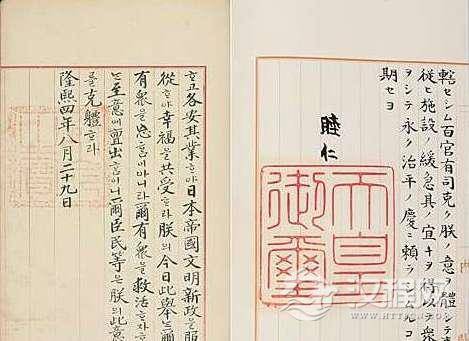 轄セシム百官有司克ク朕ノ意ヲ體シテ
從ヒ施設ノ緩急其ノ宜キヲ得以テ衆
ヲシテ永ク治平ノ慶ニ頼ラシムルコ
期セヨ
睦仁
天皇御璽
ᄒᆞ고各安其業ᄒᆞ야日本帝國文明新政을服
從ᄒᆞ야幸福을共受ᄒᆞ라朕의今日此擧ᄂᆞᆫ
有衆을忘홈에아니라爾有衆을救活ᄒᆞ자
ᄂᆞᆫ至意에亶出홈이니爾臣民等은朕의此意
를克體ᄒᆞ라
隆熙四年八月二十九日